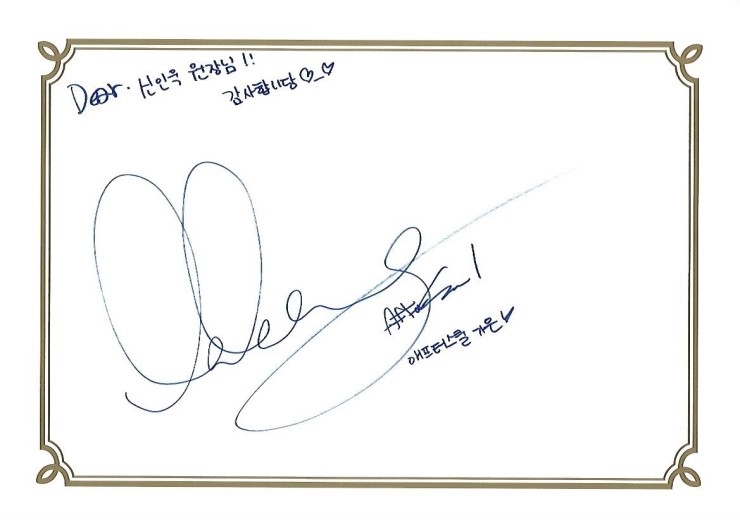 Dear. 신인욱 원장님!!
감사합니당 ♡_♡
애프터스쿨 가은♥